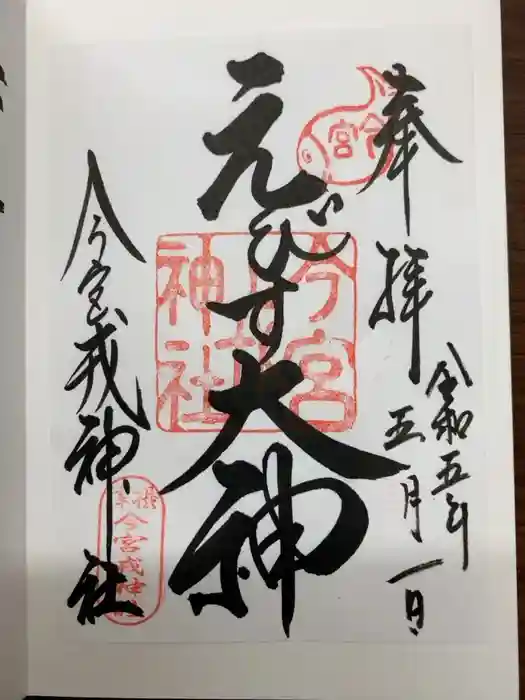 奉拝
令和五年
五月一日
えびす大神
今宮戎神社
今宮
今宮戎神社
今宮戎神社